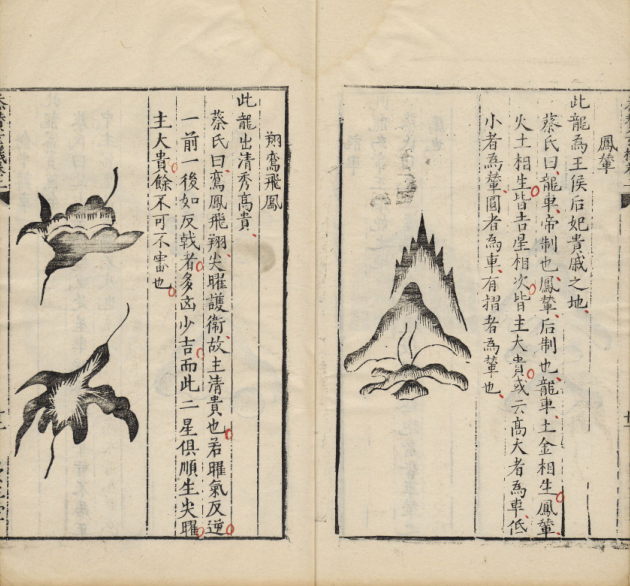 鳳輦
此龍為王侯后妃貴戚之地
蔡氏曰龍車帝制也鳳輦后制也龍車土金相生鳳輦
火土相生皆吉星相次皆主大貴或云高大者為車低
小者為輦圓者為車有摺者為輦也
翔鸞飛鳳
此龍出清秀高貴
蔡氏曰鸞鳳飛翔尖曜護衛故主清貴也若曜氣反逆
一前一後如反戟者多凶少吉而此二星俱順生尖曜
主大貴餘不可不審也